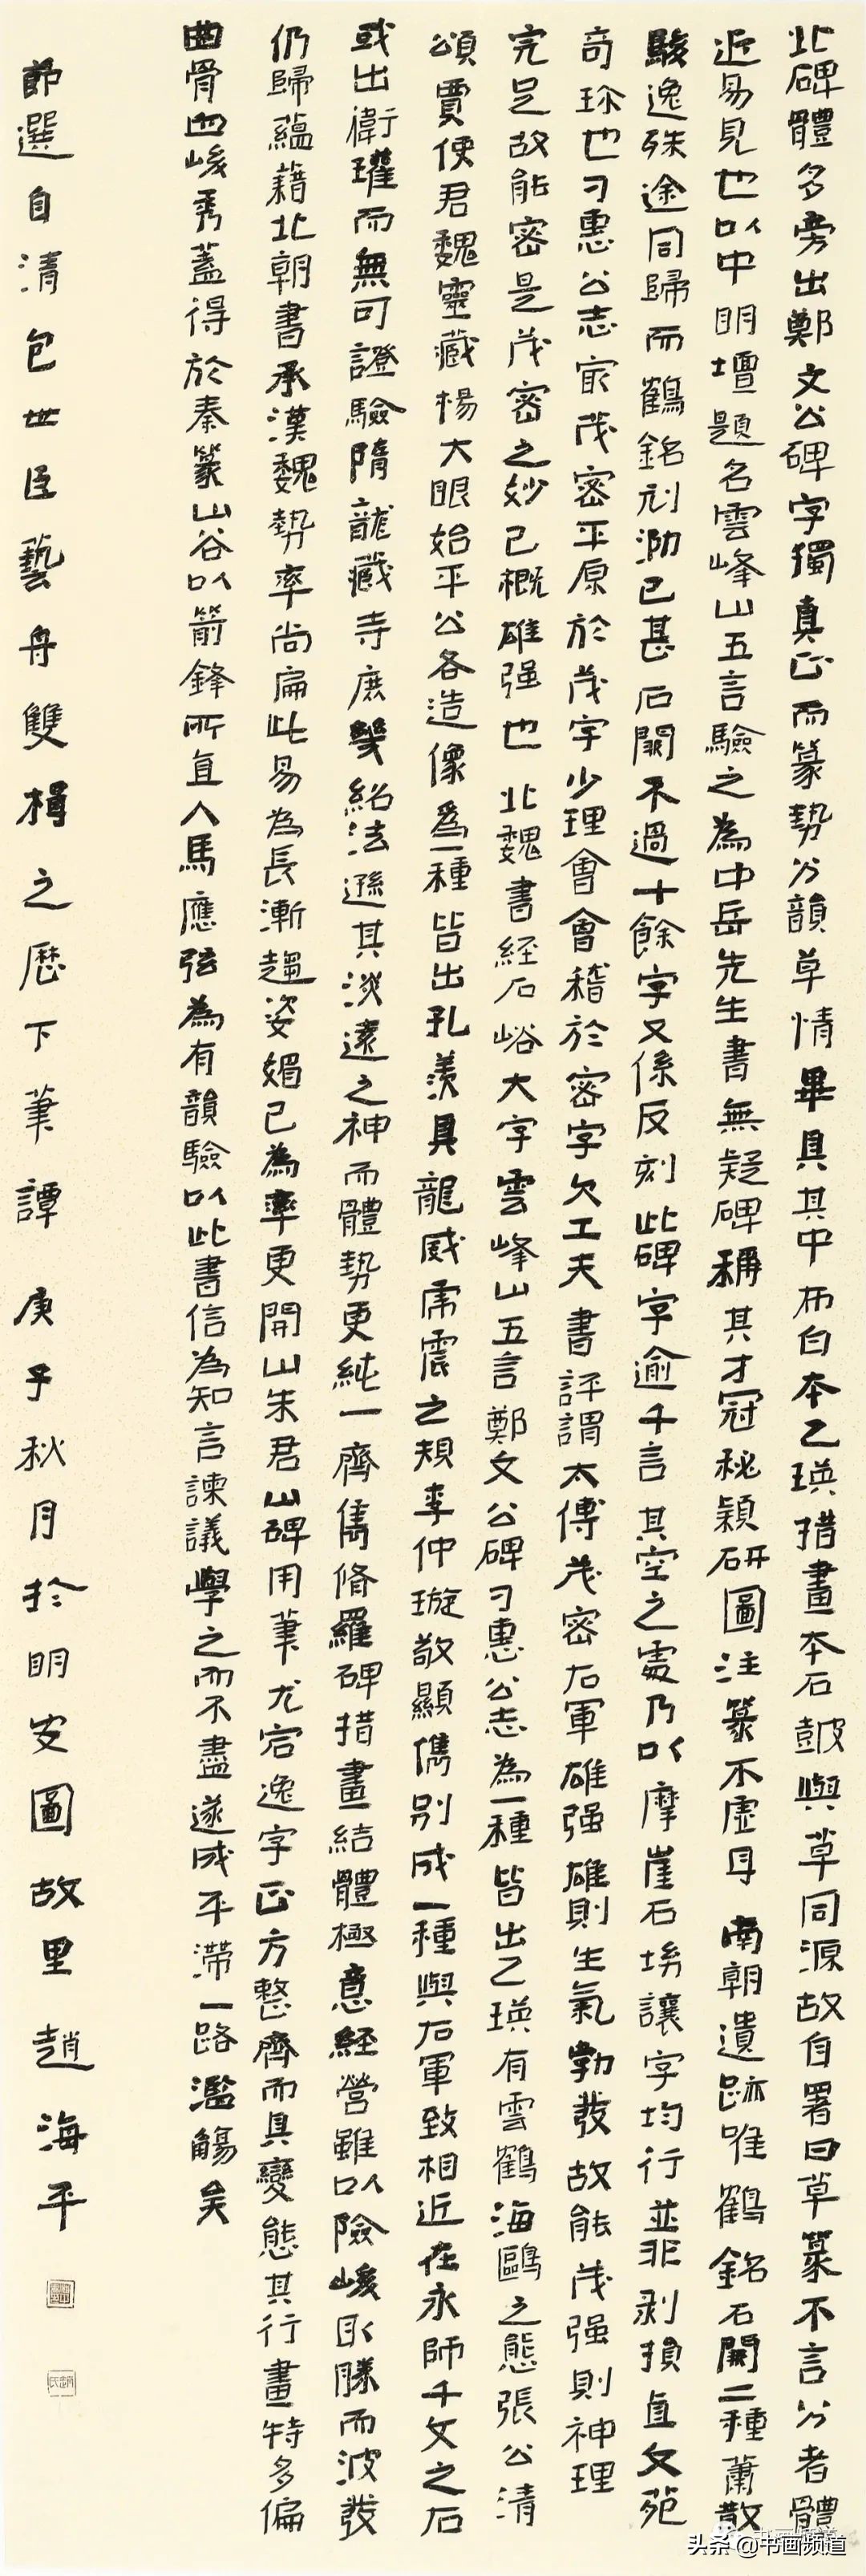 北碑體多旁出鄭文公碑字獨真正而篆勢分韻草情畢具其中布白本乙瑛措畫本石鼓與草同源故自署曰草篆不言分者體
近易見也以中明壇題名雲峰山五言驗之為中岳先生書無疑碑稱其才冠秘穎研圖注篆不虛耳南朝遺跡唯鶴銘石闕二種蕭散
駿逸殊途同歸而鶴銘刓泐已甚石闕不過十餘字又係反刻此碑字逾千言其空之處乃以摩崖石坳讓字均行並非剥損真文苑
奇珎也刁惠公志最茂密平原於茂字少理會會稽於密字欠工夫書評謂太傅茂密右軍雄强雄則生氣勃發故能茂强則神理
完足故能密是茂密之妙已概雄强也北魏書經石峪大字雲峰山五言鄭文公碑刁惠公志為一種皆出乙瑛有雲鶴海鷗之態張公清
頌賈使君魏靈藏楊大眼始平公各造像為一種皆出孔羨具龍威虎震之規李仲璇敬顯儁别成一種與右軍致相近在永師千文之右
或出衛瓘而無可證驗隋龍藏寺庶幾紹法遜其淡遠之神而體勢更純一齊雋脩羅碑措畫結體極意經營雖以險峻取勝而波發
仍歸蘊藉北朝書承漢魏勢率尚扁此易為長漸趨姿媚已為率更開山朱君山碑用筆尤宕逸字正方整齊而具變態其行畫特多偏
曲骨血峻秀蓋得於秦篆山谷以箭鋒所直人馬應弦為有韻驗以此書信為知言諫議學之而不盡遂成平滯一路濫觴矣
節選自清包世臣藝舟雙楫之歷下筆譚 庚子秋月於明安圖故里趙海平
头条 @书画频道